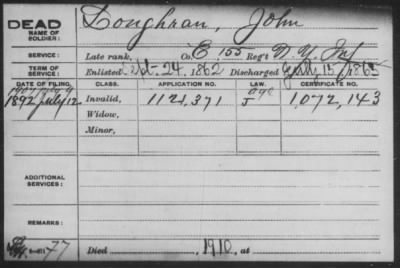 DEAD
NAME OF SOLDIER: Loughran, John
SERVICE: Late rank, Co. E, 155 Reg't N. Y. Inf
TERM OF SERVICE: Enlisted 24, 1862 Discharged July 15, 1865
DATE OF FILING. CLASS. APPLICATION NO. LAW. CERTIFICATE NO.
1892 July 12. Invalid, 1121,371 J 1,072,143
Widow,
Minor,
ADDITIONAL SERVICES:
REMARKS:
77 Died 1910, at